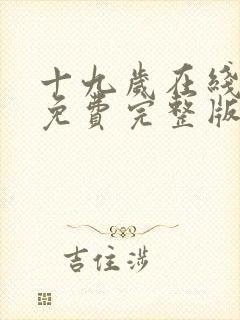 十九歲在綫
免費完整版
吉住涉